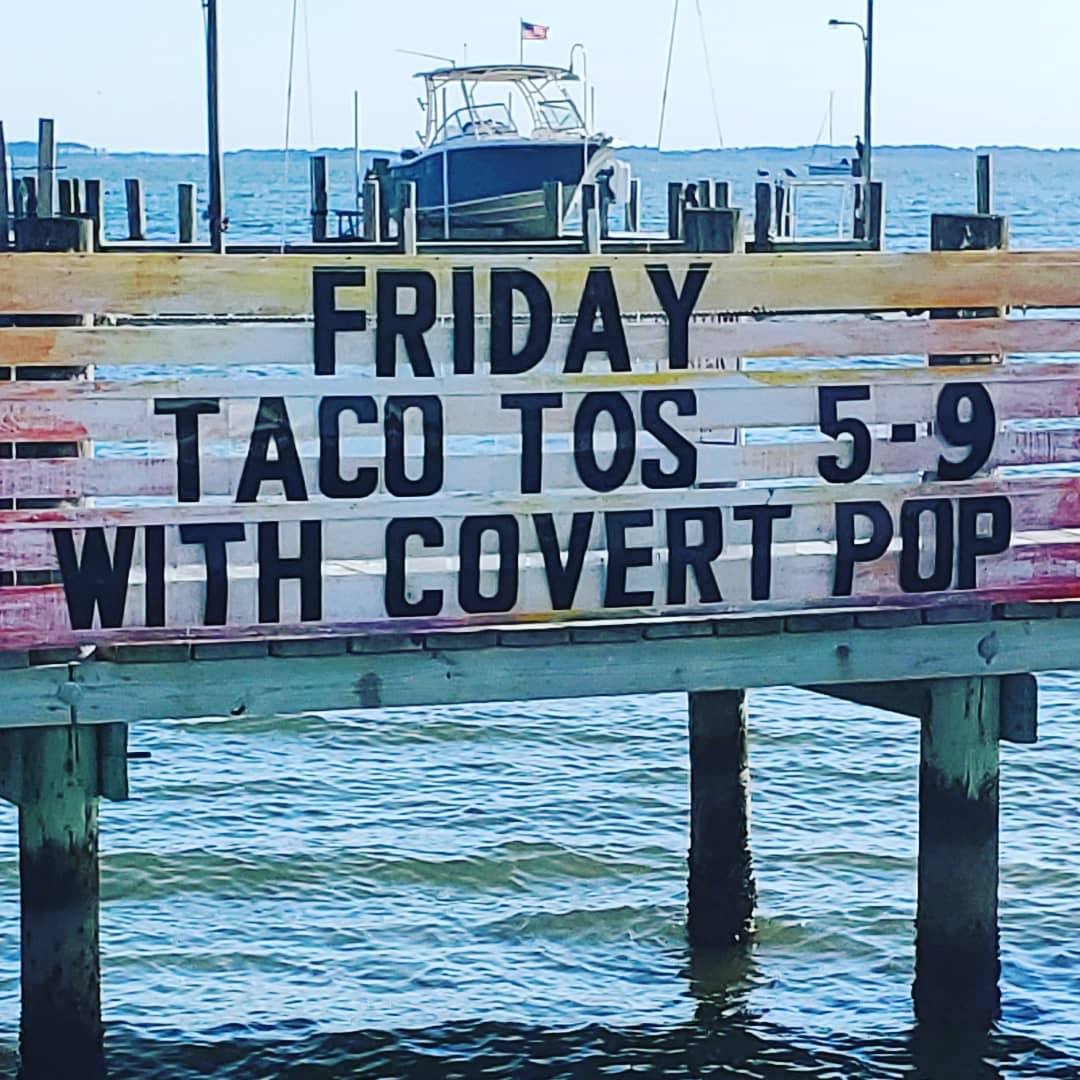 FRIDAY
TACO TOS 5-9
WITH COVERT POP